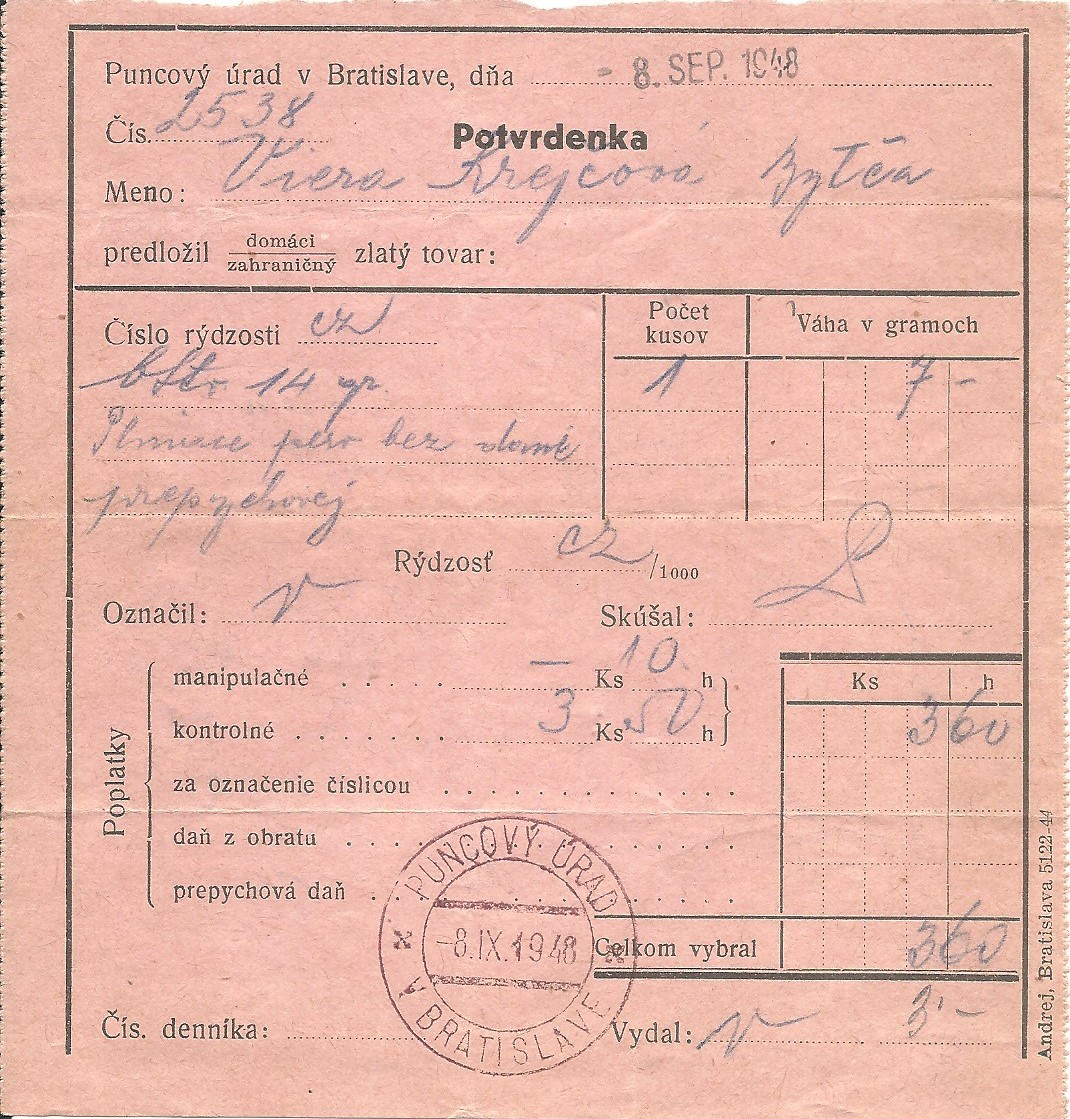 Puncový úrad v Bratislave, dňa - 8. SEP. 1948
Čís. 2538
Potvrdenka
Meno: Viera Krejcová Bytča
predložil domáci/zahraničný zlatý tovar:
Číslo rýdzosti cz
Počet kusov
Váha v gramoch
14 gr.
1
7 -
pero bez dané
prepychovej
Rýdzosť cz /1000
Označil:
Skúšal:
Poplatky
manipulačné . . . . — Ks 10 h
Ks h
kontrolné . . . . . . . 3 Ks 50 h
360
za označenie číslicou
daň z obratu
prepychová daň
Celkom vybral 360
PUNCOVÝ ÚRAD
-8.IX.1948
V BRATISLAVE
Čís. denníka:
Vydal: 3·-
Andrej, Bratislava 5122-44